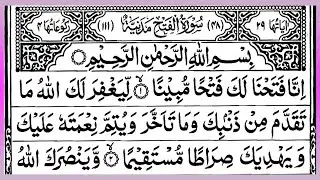 اٰیَاتُهَا ٢٩ (٤٨) سُوْرَةُ الْفَتْحِ مَدَنِیَّةٌ (١١١) رُکُوْعَاتُهَا ٤
بِسْمِ اللّٰهِ الرَّحْمٰنِ الرَّحِیْمِ
اِنَّا فَتَحْنَا لَکَ فَتْحًا مُّبِیْنًا ۙ﴿١﴾ لِّیَغْفِرَ لَکَ اللّٰهُ مَا
تَقَدَّمَ مِنْ ذَنْۢبِکَ وَمَا تَاَخَّرَ وَیُتِمَّ نِعْمَتَهٗ عَلَیْکَ
وَیَهْدِیَکَ صِرَاطًا مُّسْتَقِیْمًا ۙ﴿٢﴾ وَّیَنْصُرَکَ اللّٰهُ